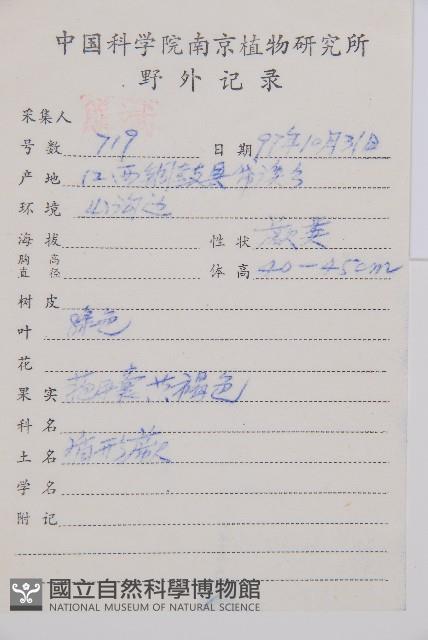 中国科学院南京植物研究所
野外记录
采集人
号数 719 日期 97年10月31日
产地 江西铜鼓县
环境 山沟边
海拔 性状 蕨类
胸高直径 体高 40-45cm
树皮
叶 绿色
花
果实 孢子囊 褐色
科名
土名 盾形蕨
学名
附记
國立自然科學博物館
NATIONAL MUSEUM OF NATURAL SCIENCE